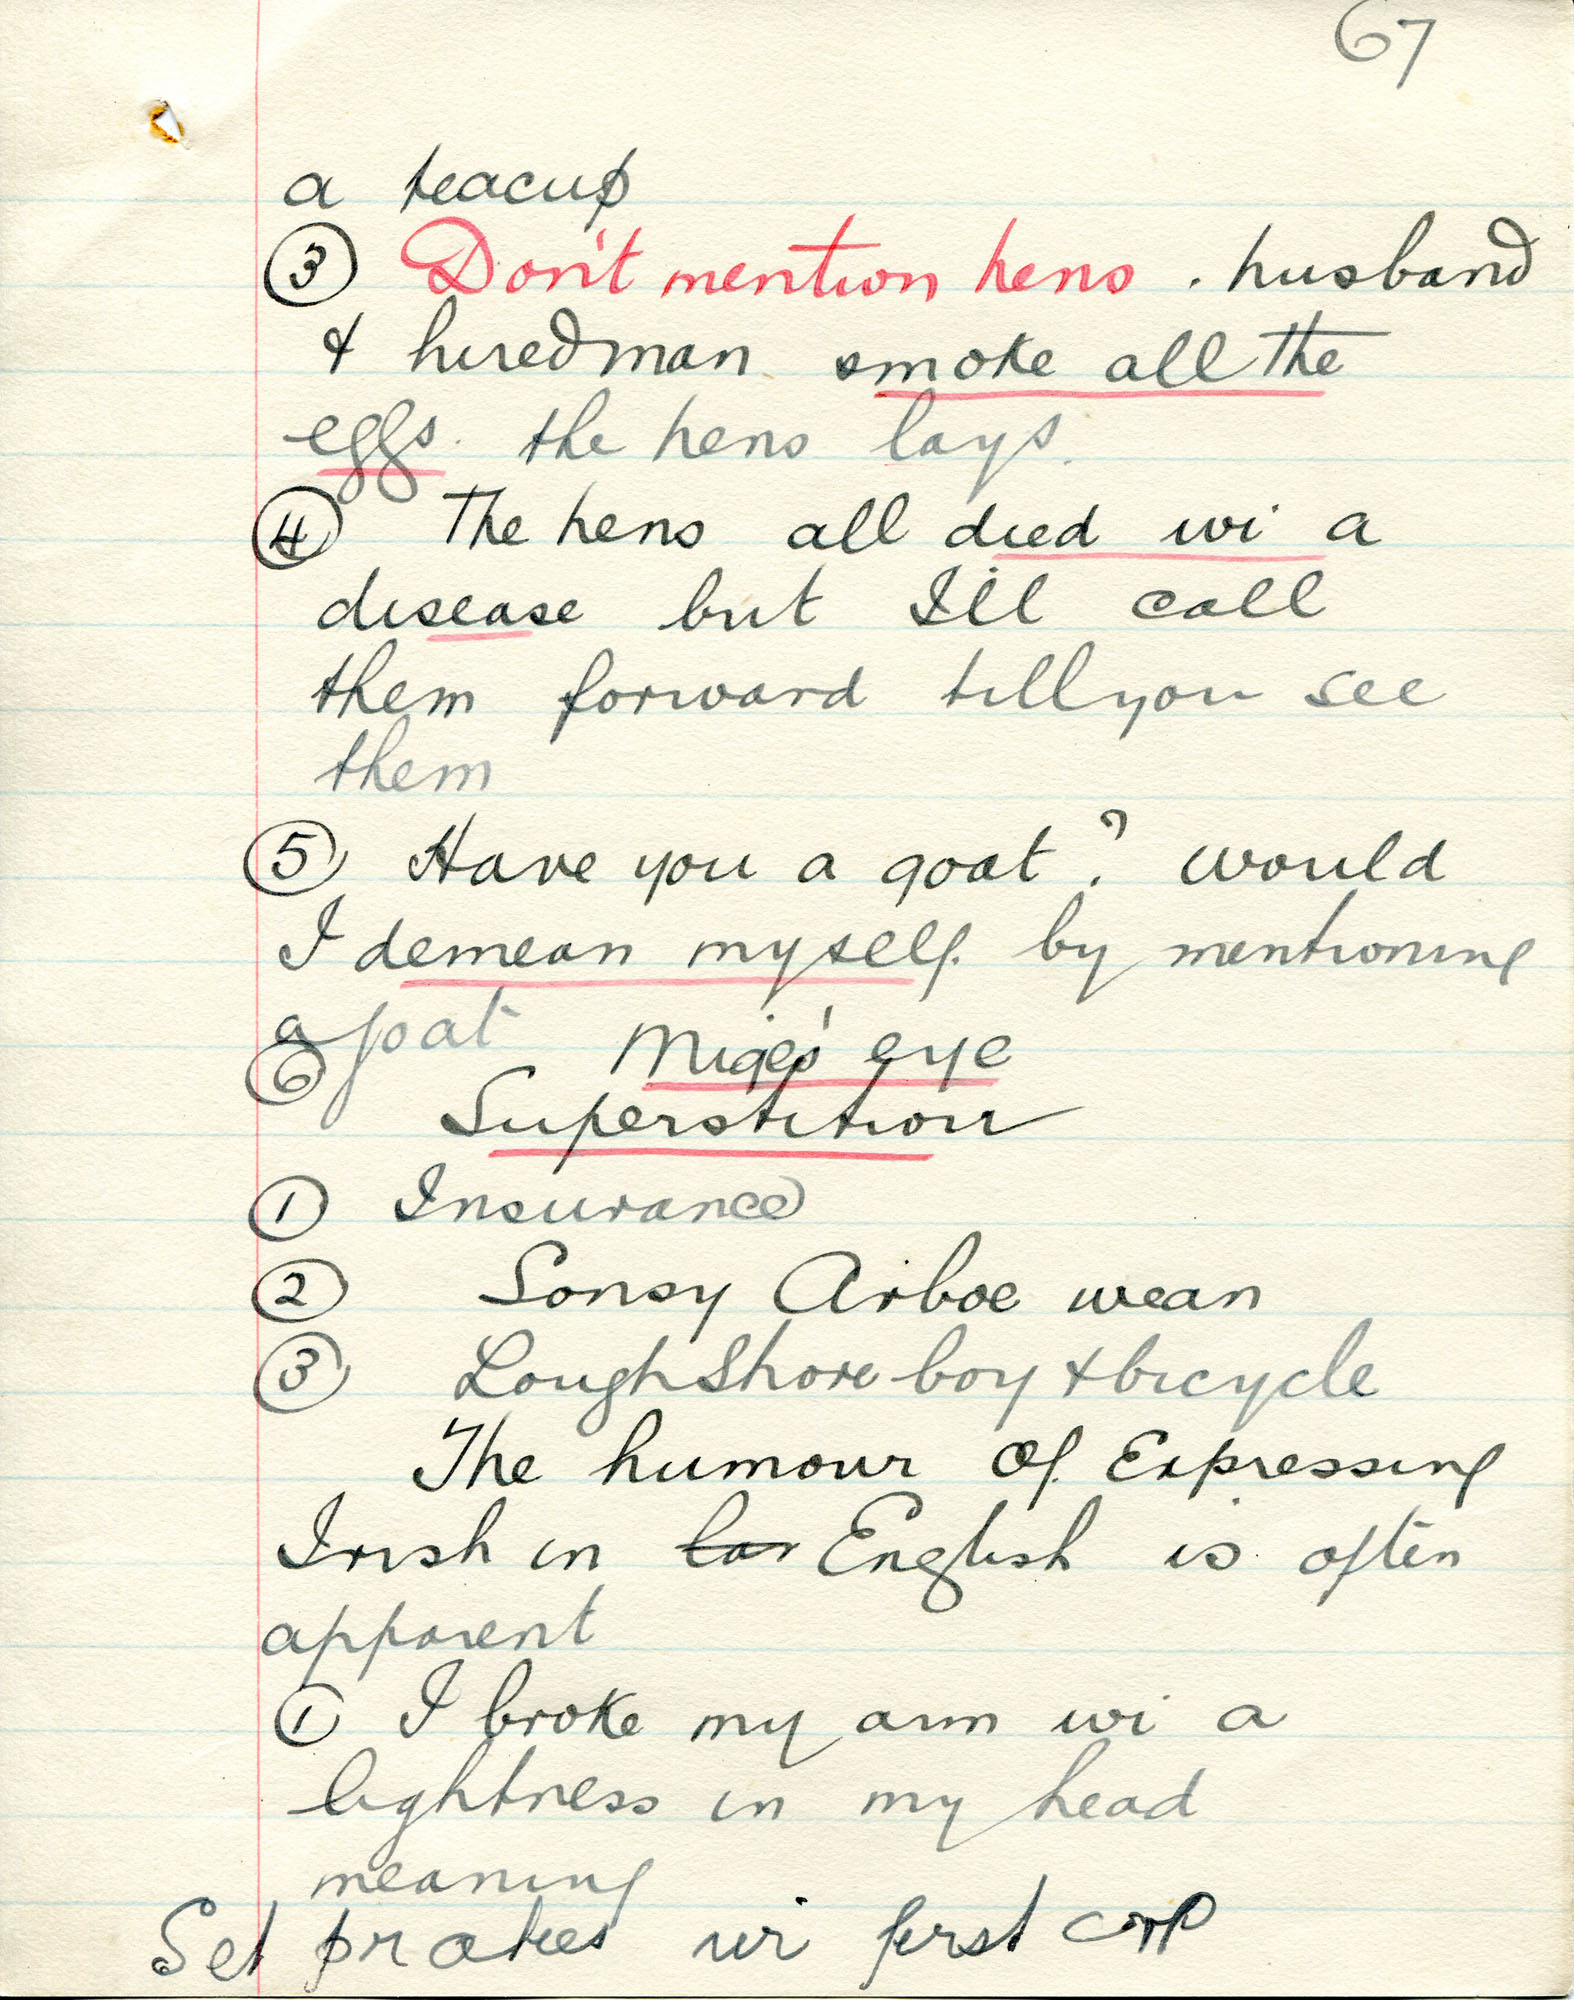 67
a teacup
③ Don't mention hens . husband
& hiredman smoke all the
eggs. the hens lays.
④ The hens all died wi a
disease but I'll call
them forward till you see
them
⑤ Have you a goat? would
I demean myself by mentioning
a goat
⑥ eye
Superstition
① Insurance
② Sonsy Arboe wean
③ Lough Shore boy & bicycle
The humour of Expressing
Irish in English is often
apparent
① I broke my arm wi a
lightness in my head
meaning
Set wi first crop